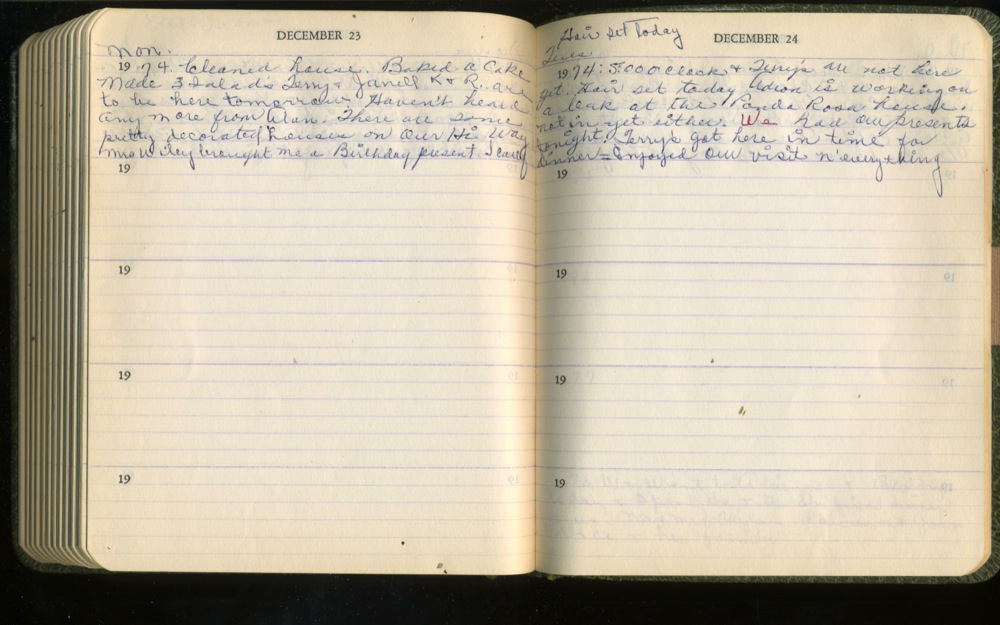 DECEMBER 23
Mon.
1974. Cleaned house. Baked a Cake
Made 3 Salads Terry & Janell K & R. are
to be here tomorrow Haven't heard
any more from Alan. There are some
pretty decorated houses on Our Hi Way
Mrs Wiley brought me a Birthday present.
19
19
19
19
Hair set Today
DECEMBER 24
Tues
1974: 5:00 O clock & Terry's are not here
yet. Hair set today is working on
a leak at the Rosa house.
not in yet either. We had our presents
tonight. Terry's got here in time for
dinner = Enjoyed our visit n' everything
19
19
19
19